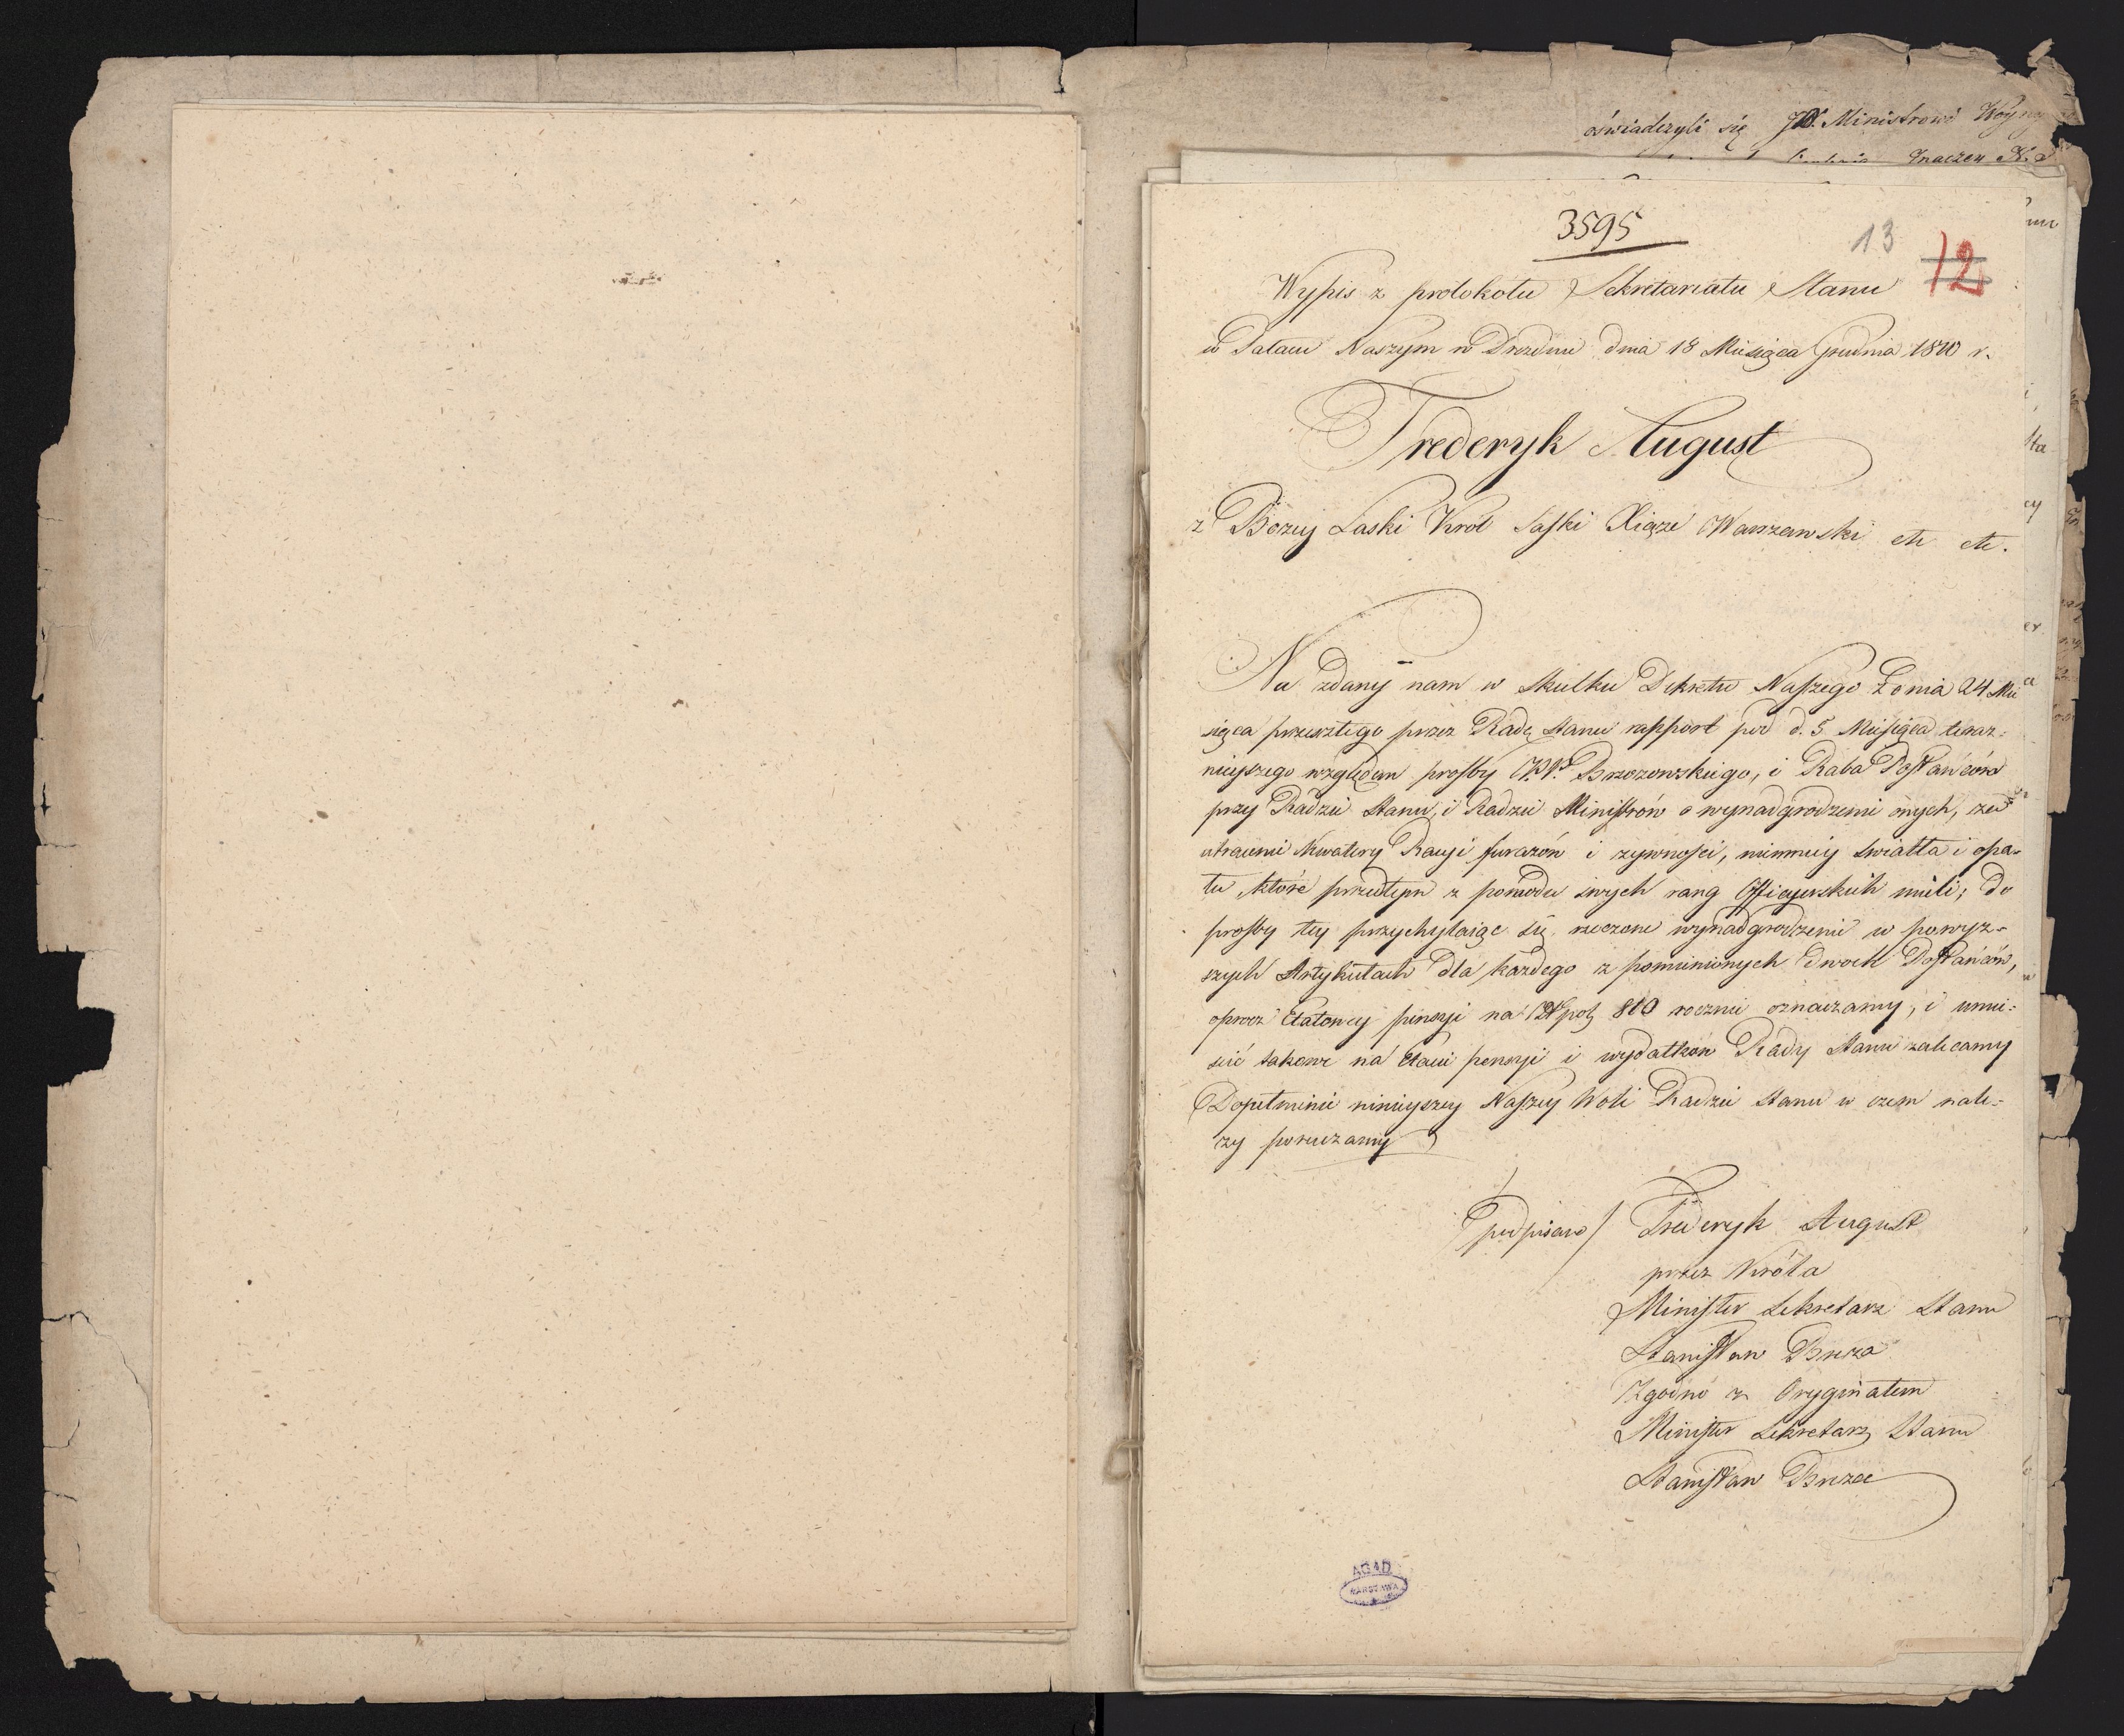 oświadczyli się JW. Ministrowi Woyny
3595
13
12
Wypis z protokołu Sekretariatu Stanu
w Pałacu Naszym w Dreźnie dnia 18 Miesiąca Grudnia 1810 r.
Frederyk August
z Bożey Łaski Król Saski Xiąże Warszawski etc etc.
Na zdany nam w skutku Dekretu Naszego z dnia 24 Mie
siąca przeszłego przez Radę Stanu rapport pod d. 5 Miesiąca teraz-
nieyszego względem prośby Brzozowskiego, i Raba Posłańców
przy Radzie Stanu, i Radzie Ministrów o wynadgrodzenie onych, za
utracenie Kwatery Racyi furażów i żywności, niemniey światła i opa-
łu, które przedtym z powodu swych rang Officyerskich mieli; do
prośby tey przychylaiąc się rzeczone wynadgrodzenie w powyż-
szych Artykułach dla każdego z pomienionych dwóch Posłańców,
oprócz Etatowey pensyi na Złpol 810 rocznie oznaczamy, i umie-
ścić takowe na Etacie pensyi i wydatków Rady Stanu zalecamy
Dopełnienie ninieyszey Naszey Woli Radzie Stanu w czem nale-
ży poruczamy
podpisano / Frederyk August
przez Króla
Minister Sekretarz Stanu
Stanisław Breza
Zgodno z Oryginałem
Minister Sekretarz Stanu
Stanisław Breza
AGAD
WARSZAWA